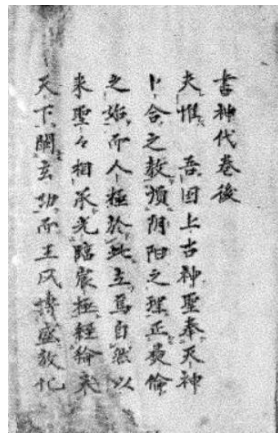 書神代巻後
夫惟 吾国上古神聖奉天神
卜合之教順陰阳之理正彝倫
之始而人極於此立焉自然以
来聖々相承光臨宸極経綸
天下開玄功而王風